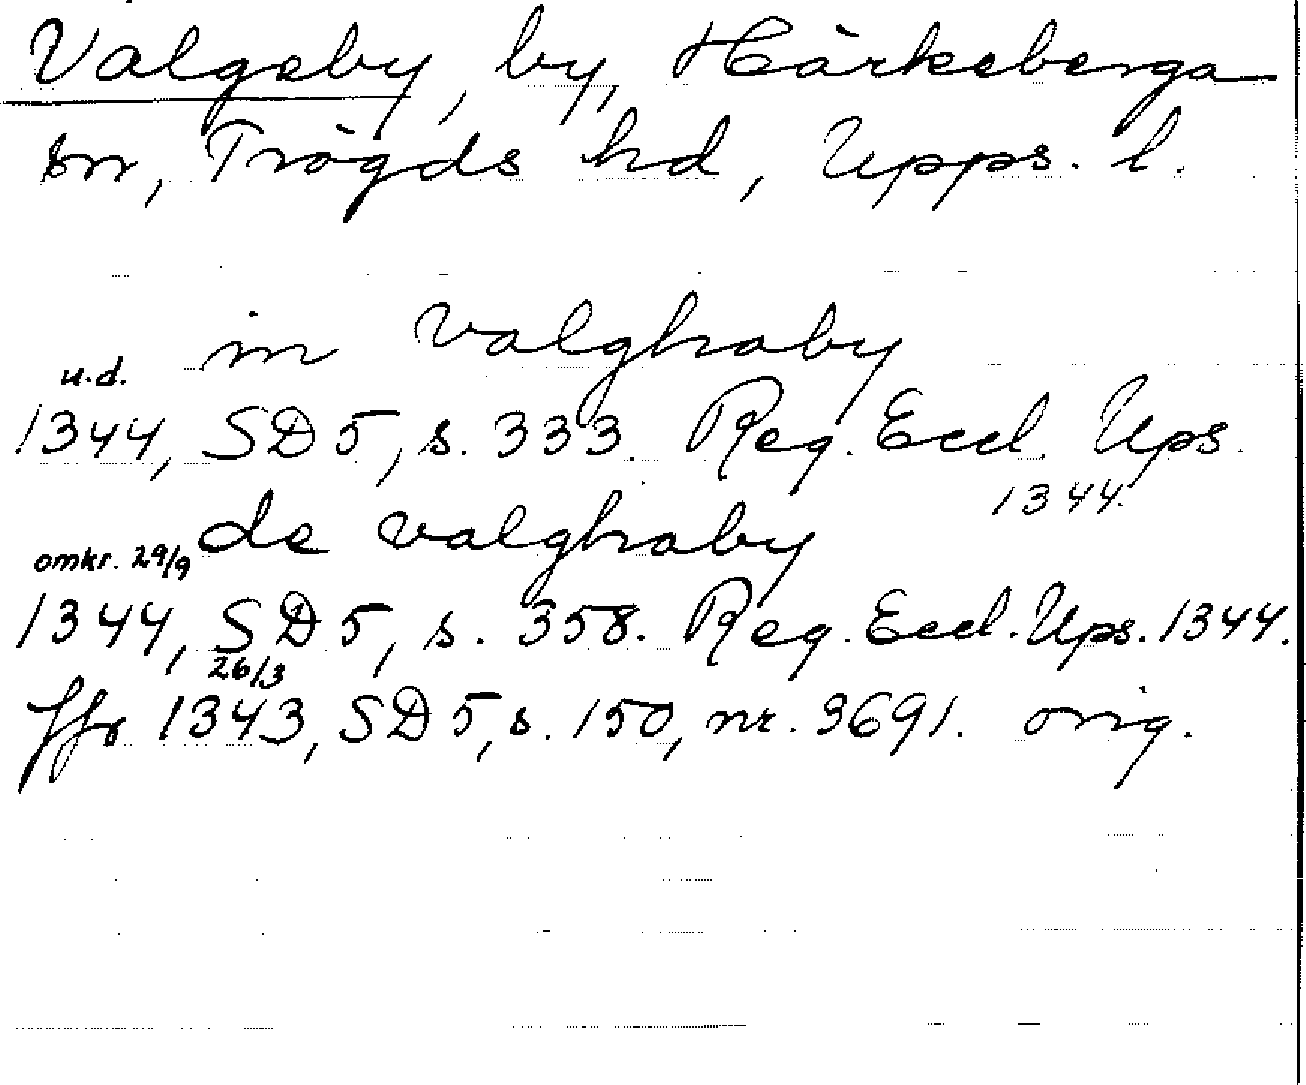 Valgeby, by, Härkeberga
sn, Trögds hd, Upps. l.
in valghaby
u.d.
1344, SD 5, s. 333. Reg. Eccl. Ups.
1344.
de valghaby
omkr. 29/9
1344, SD 5, s. 358. Reg. Eccl. Ups. 1344.
26/3
Jfr 1343, SD 5, s. 150, nr. 3691. orig.